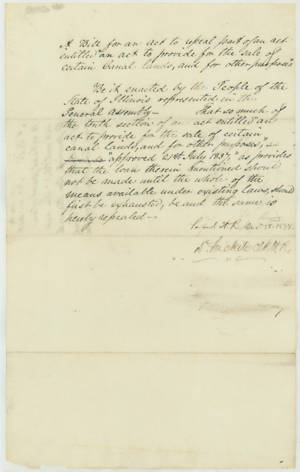 A Bill for an act to repeal part of an act
entitled "an act to provide for the sale of
certain Canal lands, and for other purposes
Be it enacted by the People of the
State of Illinois represented in the
General assembly— That so much of
the tenth section of an act entitled "an
act to provide for the sale of certain
canal lands, and for other purposes,"
approved 21st July 1837," as provides
that the loan therein mentioned should
not be made until the whole of the
means available under existing laws, should
first be exhausted, be and the same is
hereby repealed—
H. R.